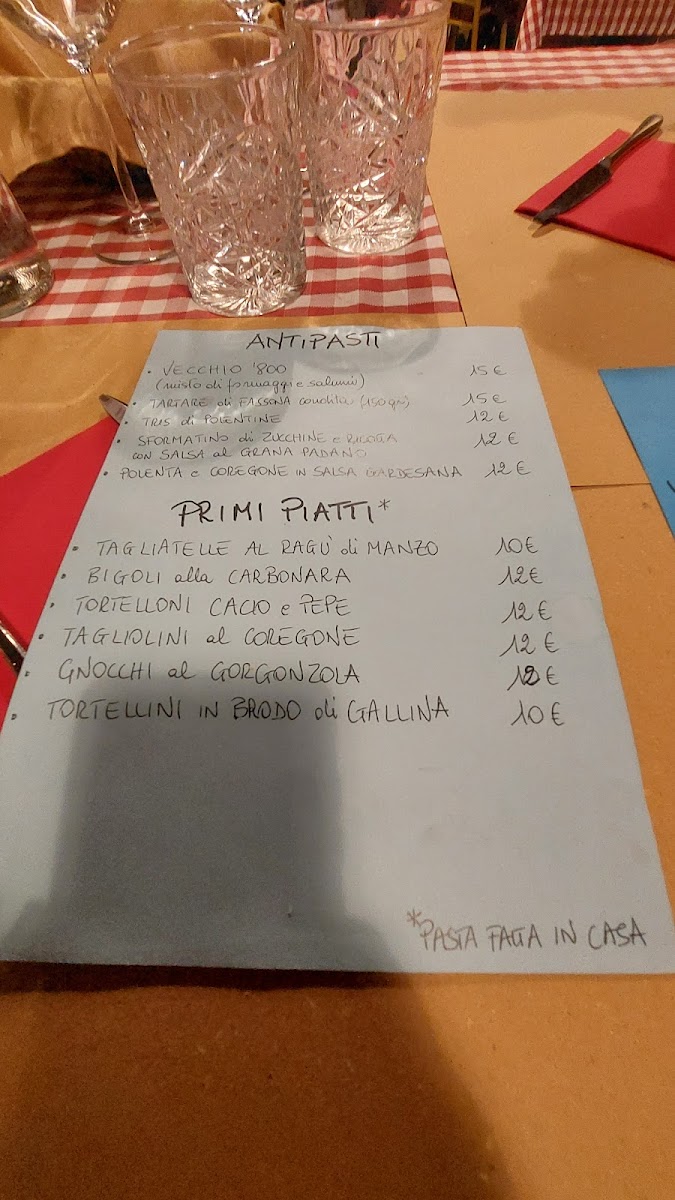 ANTIPASTI
• VECCHIO '800 15 €
(misto di formaggi e salumi)
• TARTARE di FASSONA condita (150 gr) 15 €
• TRIS di POLENTINE 12 €
• SFORMATINO di ZUCCHINE e RICOTTA 12 €
CON SALSA al GRANA PADANO
• POLENTA e COREGONE IN SALSA GARDESANA 12 €
PRIMI PIATTI*
• TAGLIATELLE AL RAGÙ di MANZO 10 €
• BIGOLI alla CARBONARA 12 €
• TORTELLONI CACIO e PEPE 12 €
• TAGLIOLINI al COREGONE 12 €
• GNOCCHI al GORGONZOLA €
• TORTELLINI IN BRODO di GALLINA 10 €
*PASTA FATTA IN CASA